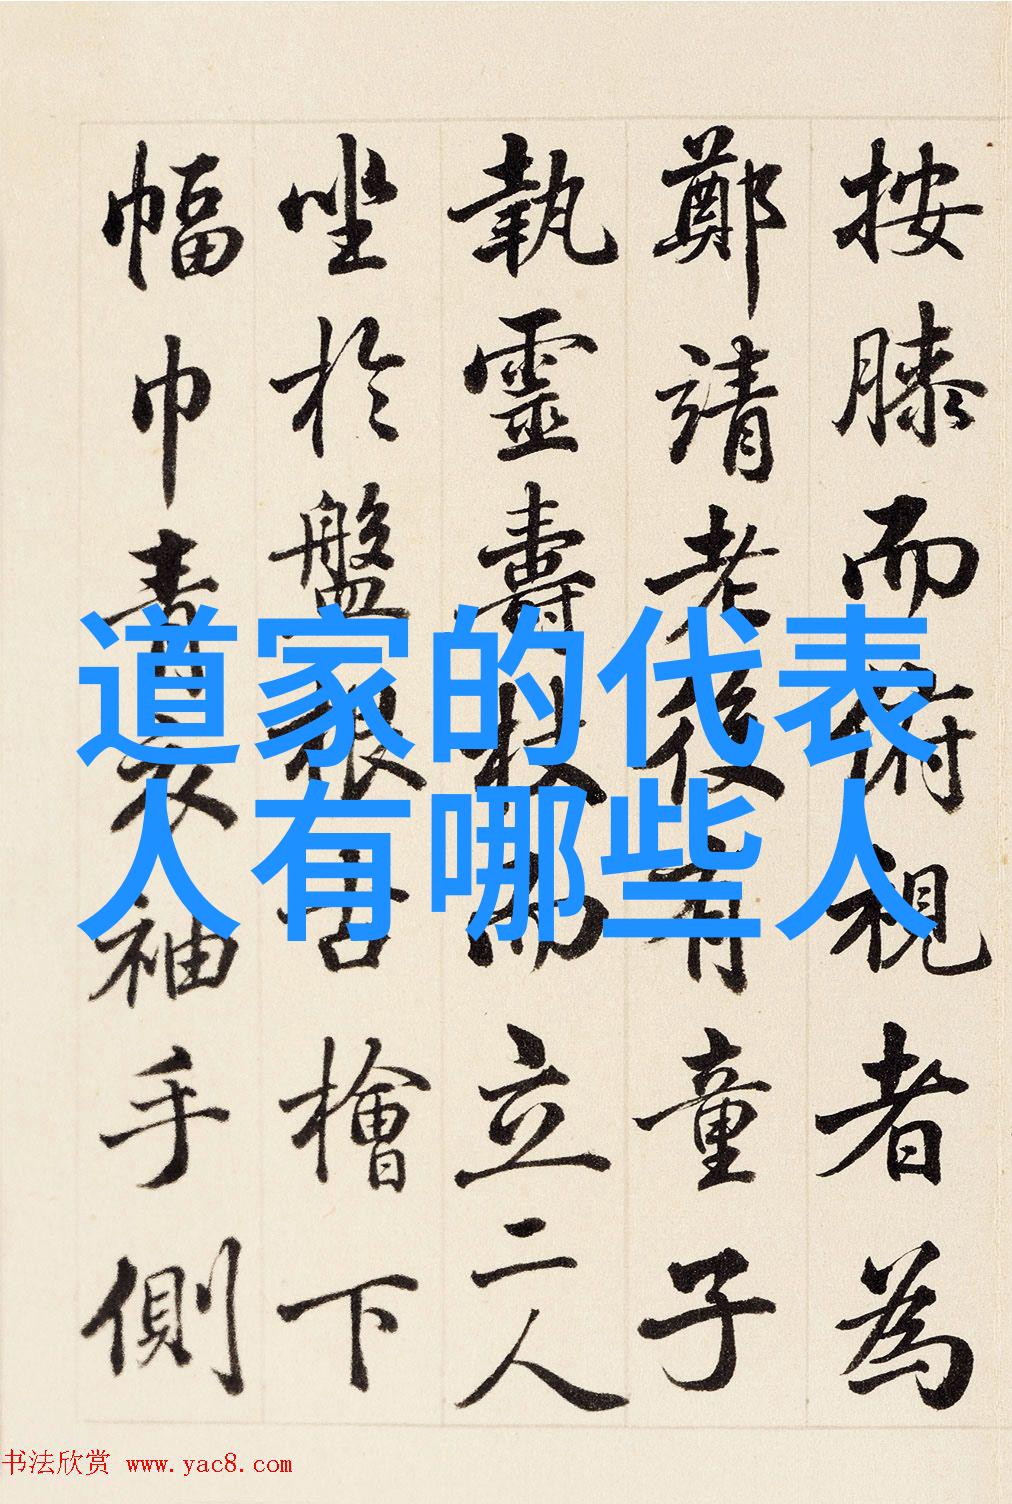 按膝而俯視者為
鄭靖老後有童子
執靈壽杖而立二人
坐於盤根古檜下
幅巾青衣袖手側
道家的代表
人有哪些人
书法欣赏 www.yac8.com